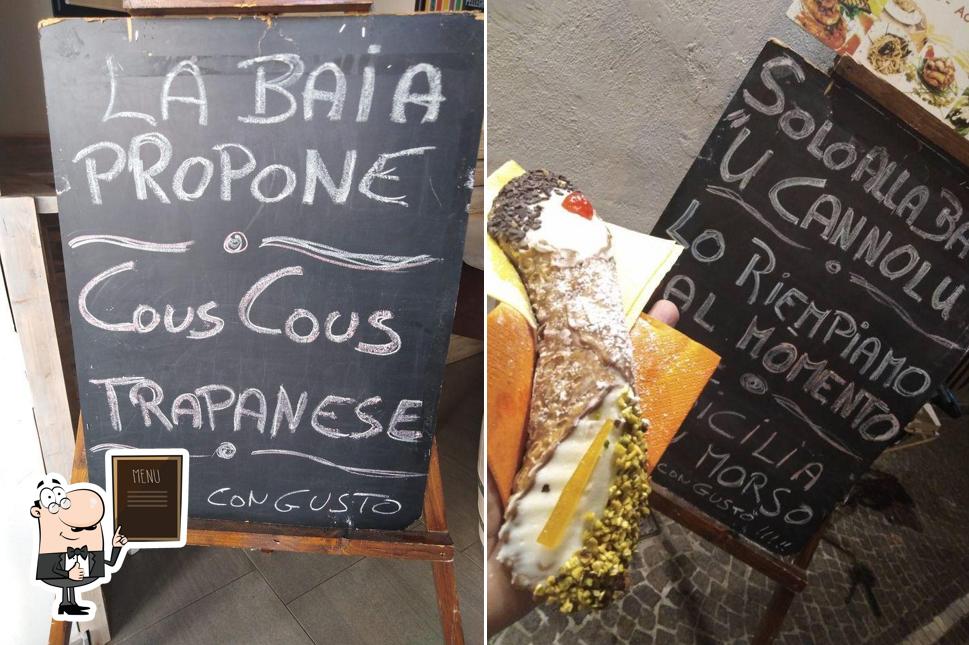 LA BAIA
PROPONE
COUS COUS
TRAPANESE
CON GUSTO
MENU
SOLO ALLA BA
"U CANNOLU
LO RIEMPIAMO
AL MOMENTO
SICILIA
MORSO
CON GUSTO" !!!!